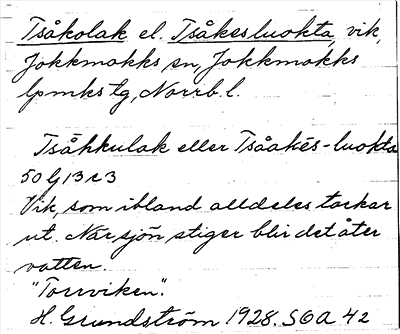 Tsåkolak el. Tsåkesluokta, vik,
Jokkmokks sn, Jokkmokks
lpmks tg, Norrb. l.
Tsåhkulak eller Tsåakēs-luokta
50 G 13 c 3
Vik, som ibland alldeles torkar
ut. När sjön stiger blir det åter
vatten.
"Torrviken".
H. Grundström 1928. SOA 42